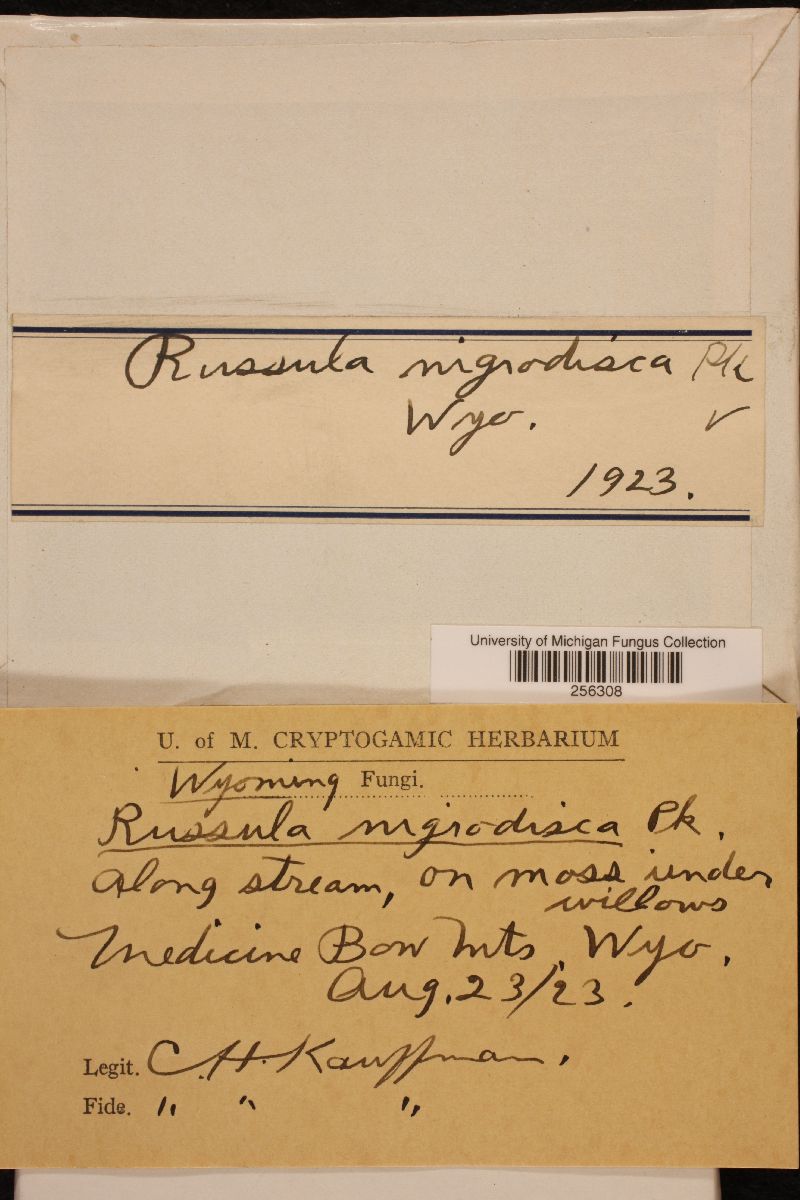 Russula nigrodisca Pk
Wyo. ✓
1923.
University of Michigan Fungus Collection
256308
U. of M. CRYPTOGAMIC HERBARIUM
Wyoming Fungi.
Russula nigrodisca Pk.
Along stream, on moss under
willows
Medicine Bow Mts. Wyo.
Aug. 23/23.
Legit. C.H. Kauffman.
Fide. " " "